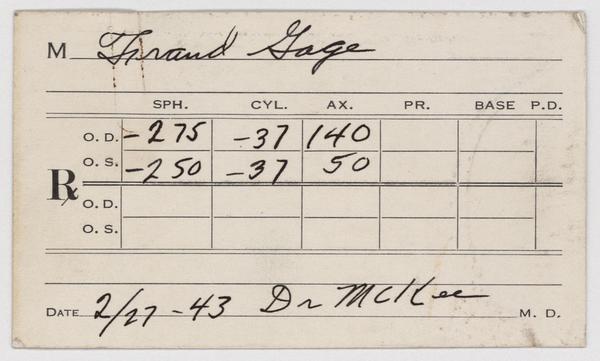 M Thrand Gage
SPH. CYL. AX. PR. BASE P.D.
O. D. -275 -37 140
O. S. -250 -37 50
Rx
O. D.
O. S.
DATE 2/27-43 Dr McKee M. D.